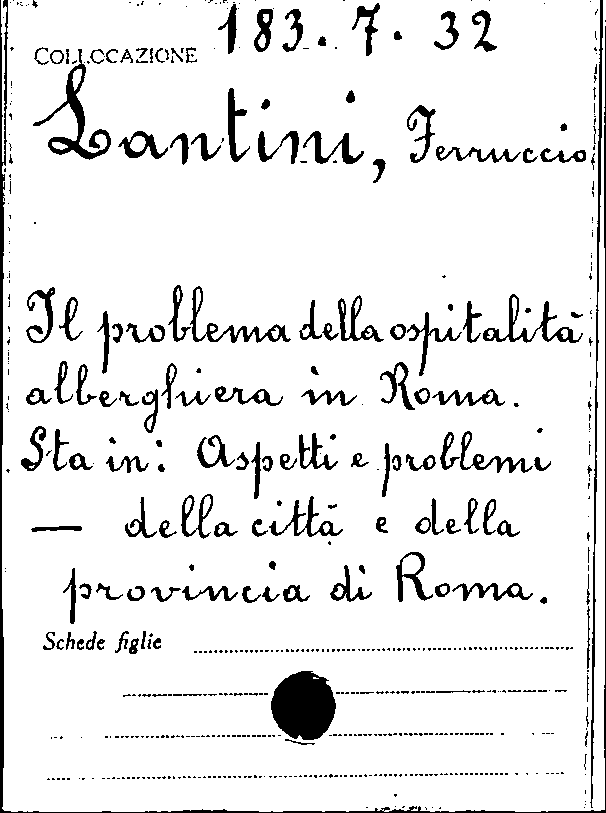 COLLOCAZIONE 183.7.32
Lantini, Ferruccio
Il problema della ospitalità
alberghiera in Roma.
Sta in: Aspetti e problemi
— della città e della
provincia di Roma.
Schede figlie